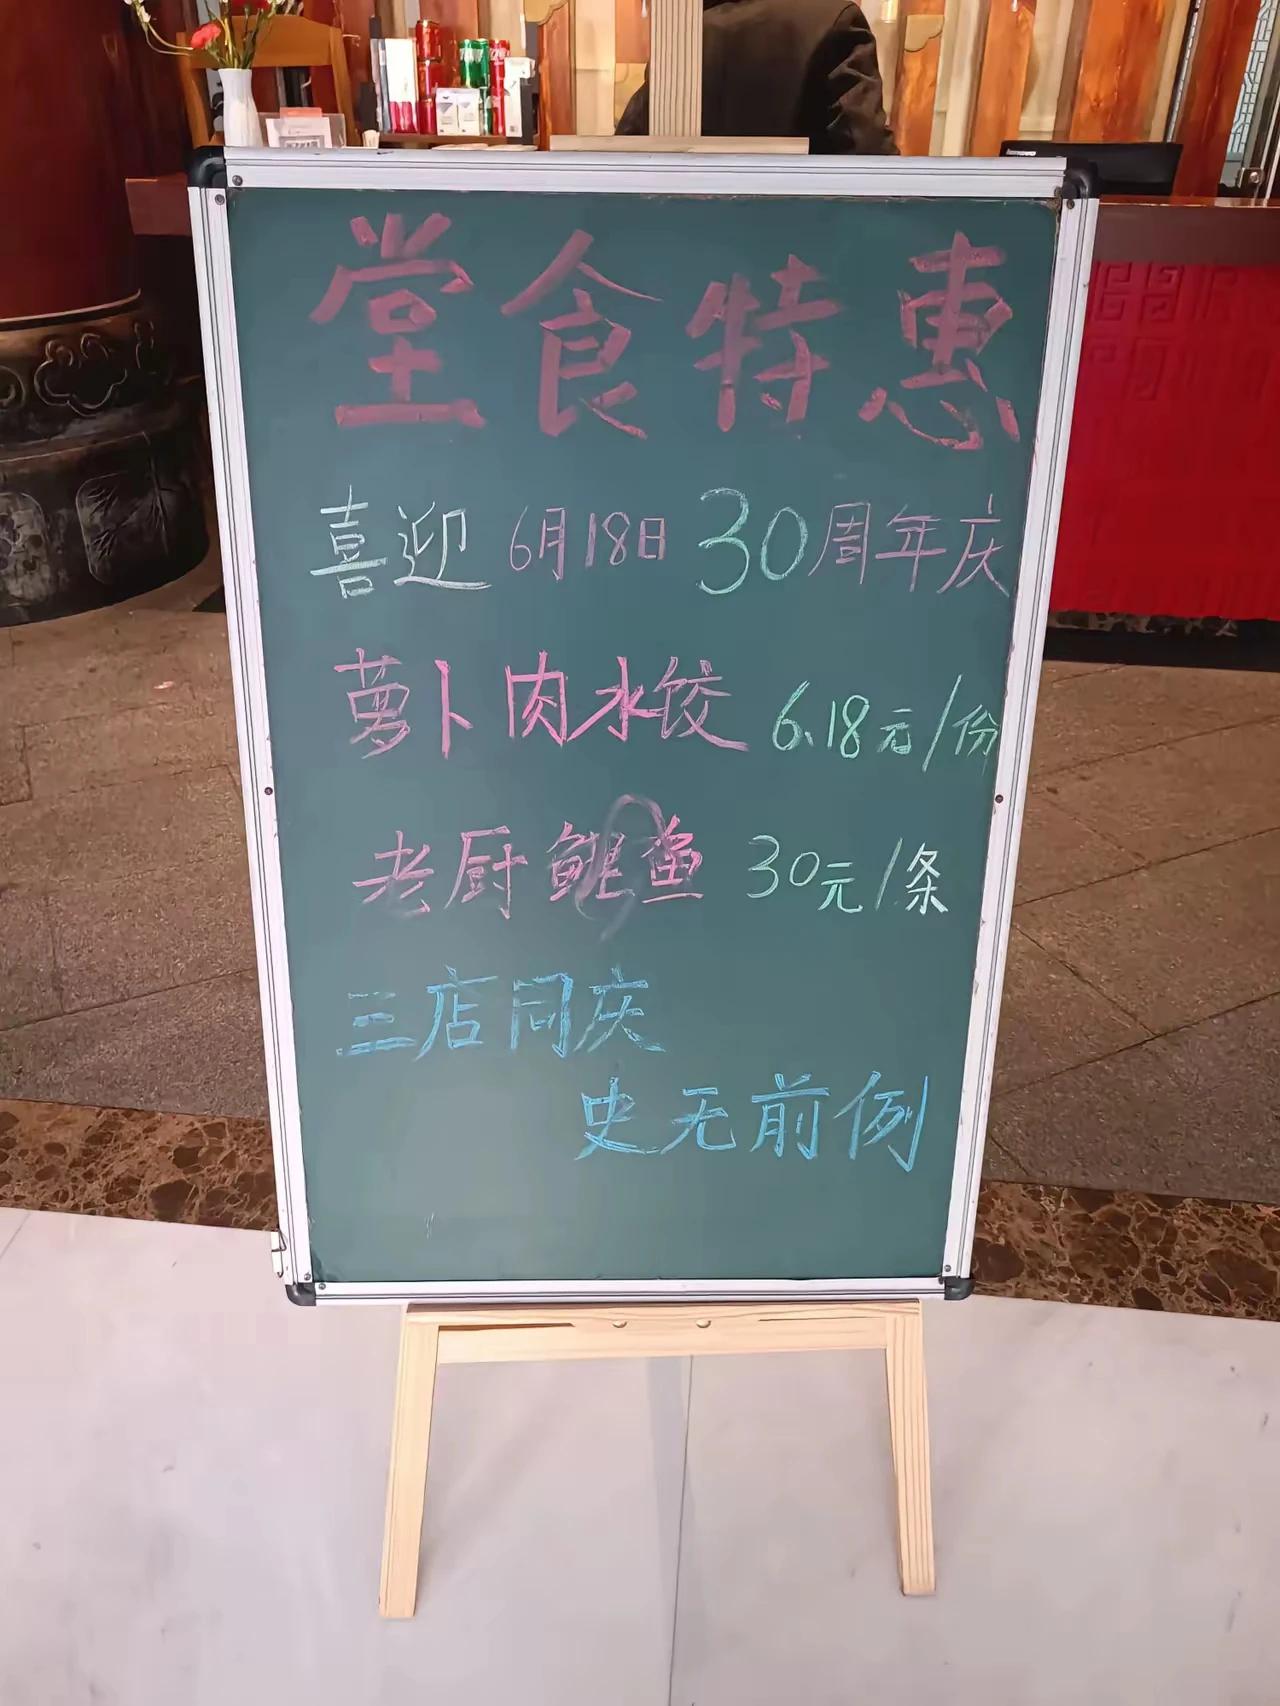 堂食特惠
喜迎 6月18日 30周年庆
萝卜肉水饺 6.18元/份
老厨鲤鱼 30元/条
三店同庆
史无前例
lenovo